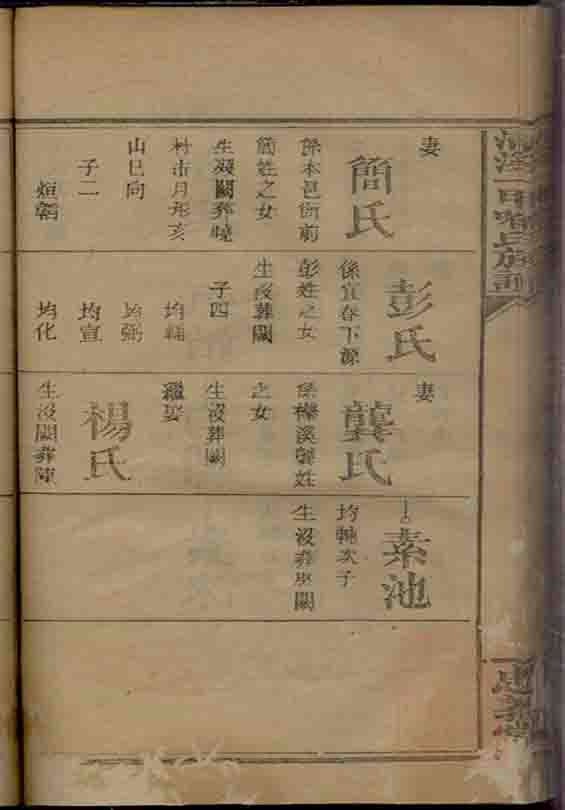 妻
簡氏
係本邑
簡姓之女
生歿闕葬曉
村市月形亥
山巳向
子二
烜
彭氏
係宜春下源
彭姓之女
生歿葬闕
子四
均輔
均弼
均宣
均化
妻
龔氏
係 溪龔姓
之女
生沒葬闕
繼娶
楊氏
生沒闕葬陳
素池
均 次子
生沒葬 闕
族譜